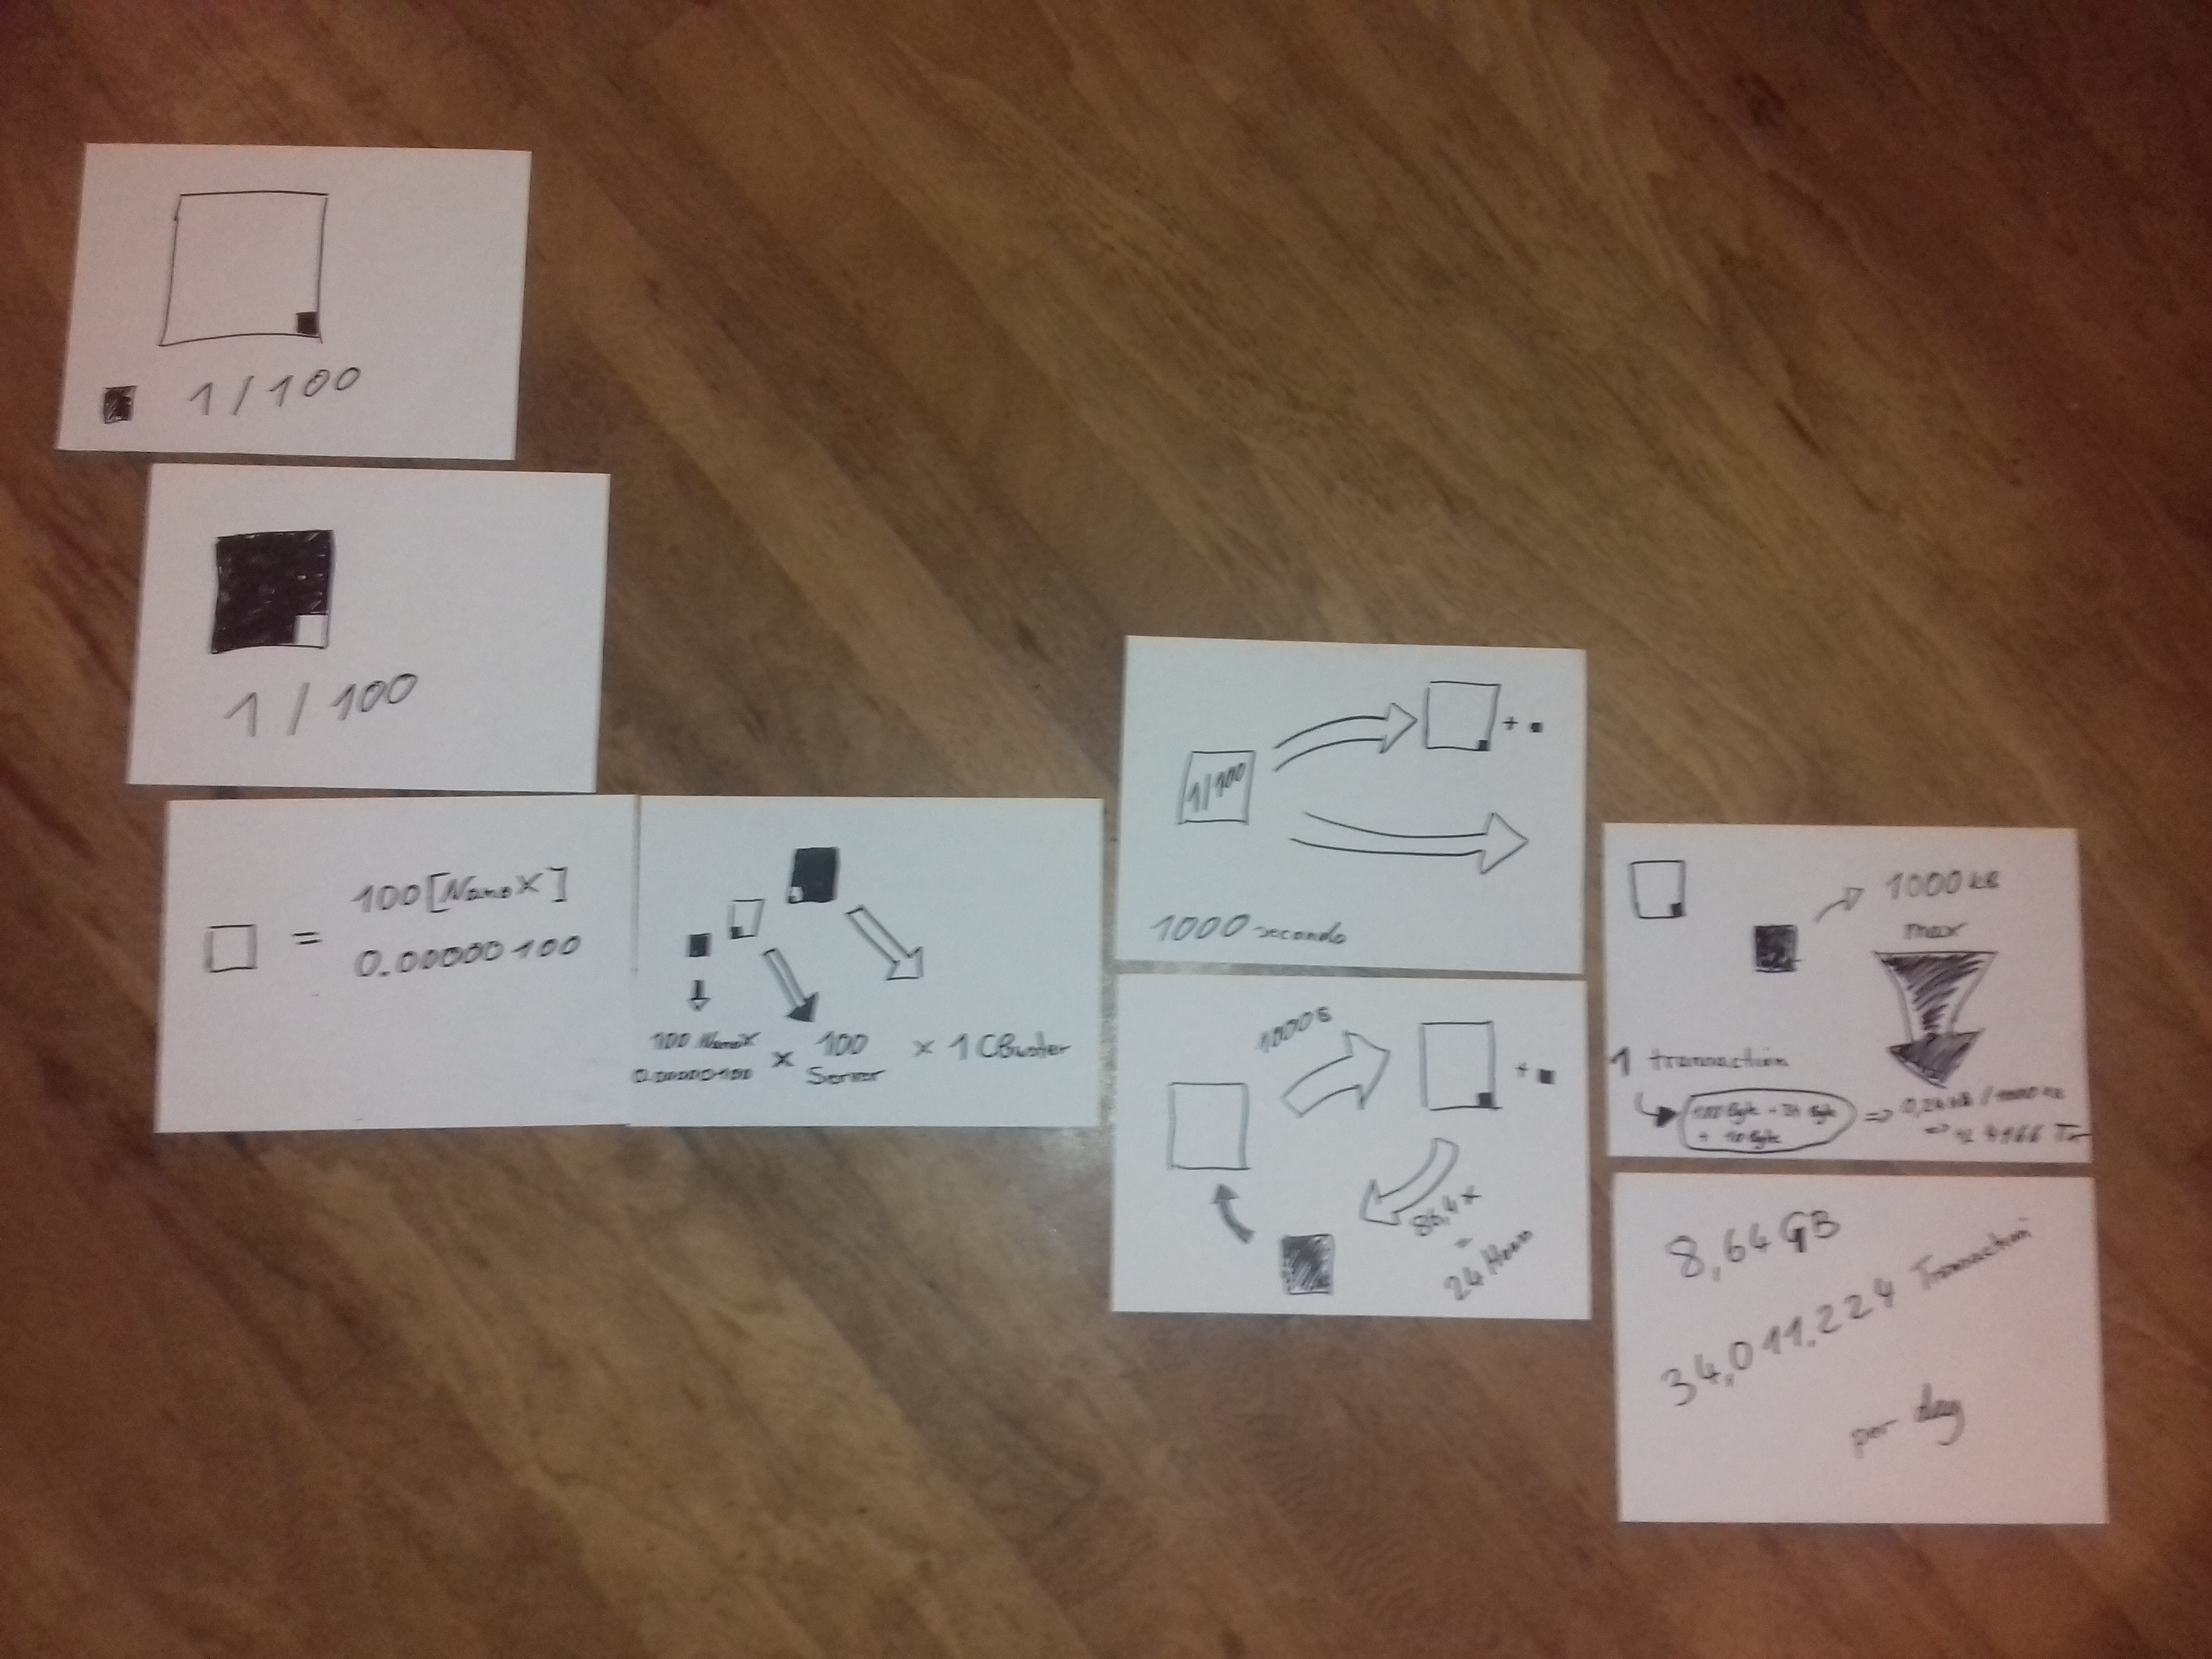 1/100
1/100
100[NanoX]
0.00000100
=
100 NanoX
0.00000100
x
100
Server
x 1 CBuster
1/100
+
1000 seconds
1000s
+
86,4x
=
24 Hours
1000 kB
max
1 transaction
100 Byte +
+ 10 Byte
=>
/ 1000 kB
=> 4166 Tr
8,64 GB
34,011.224 Transaction
per day